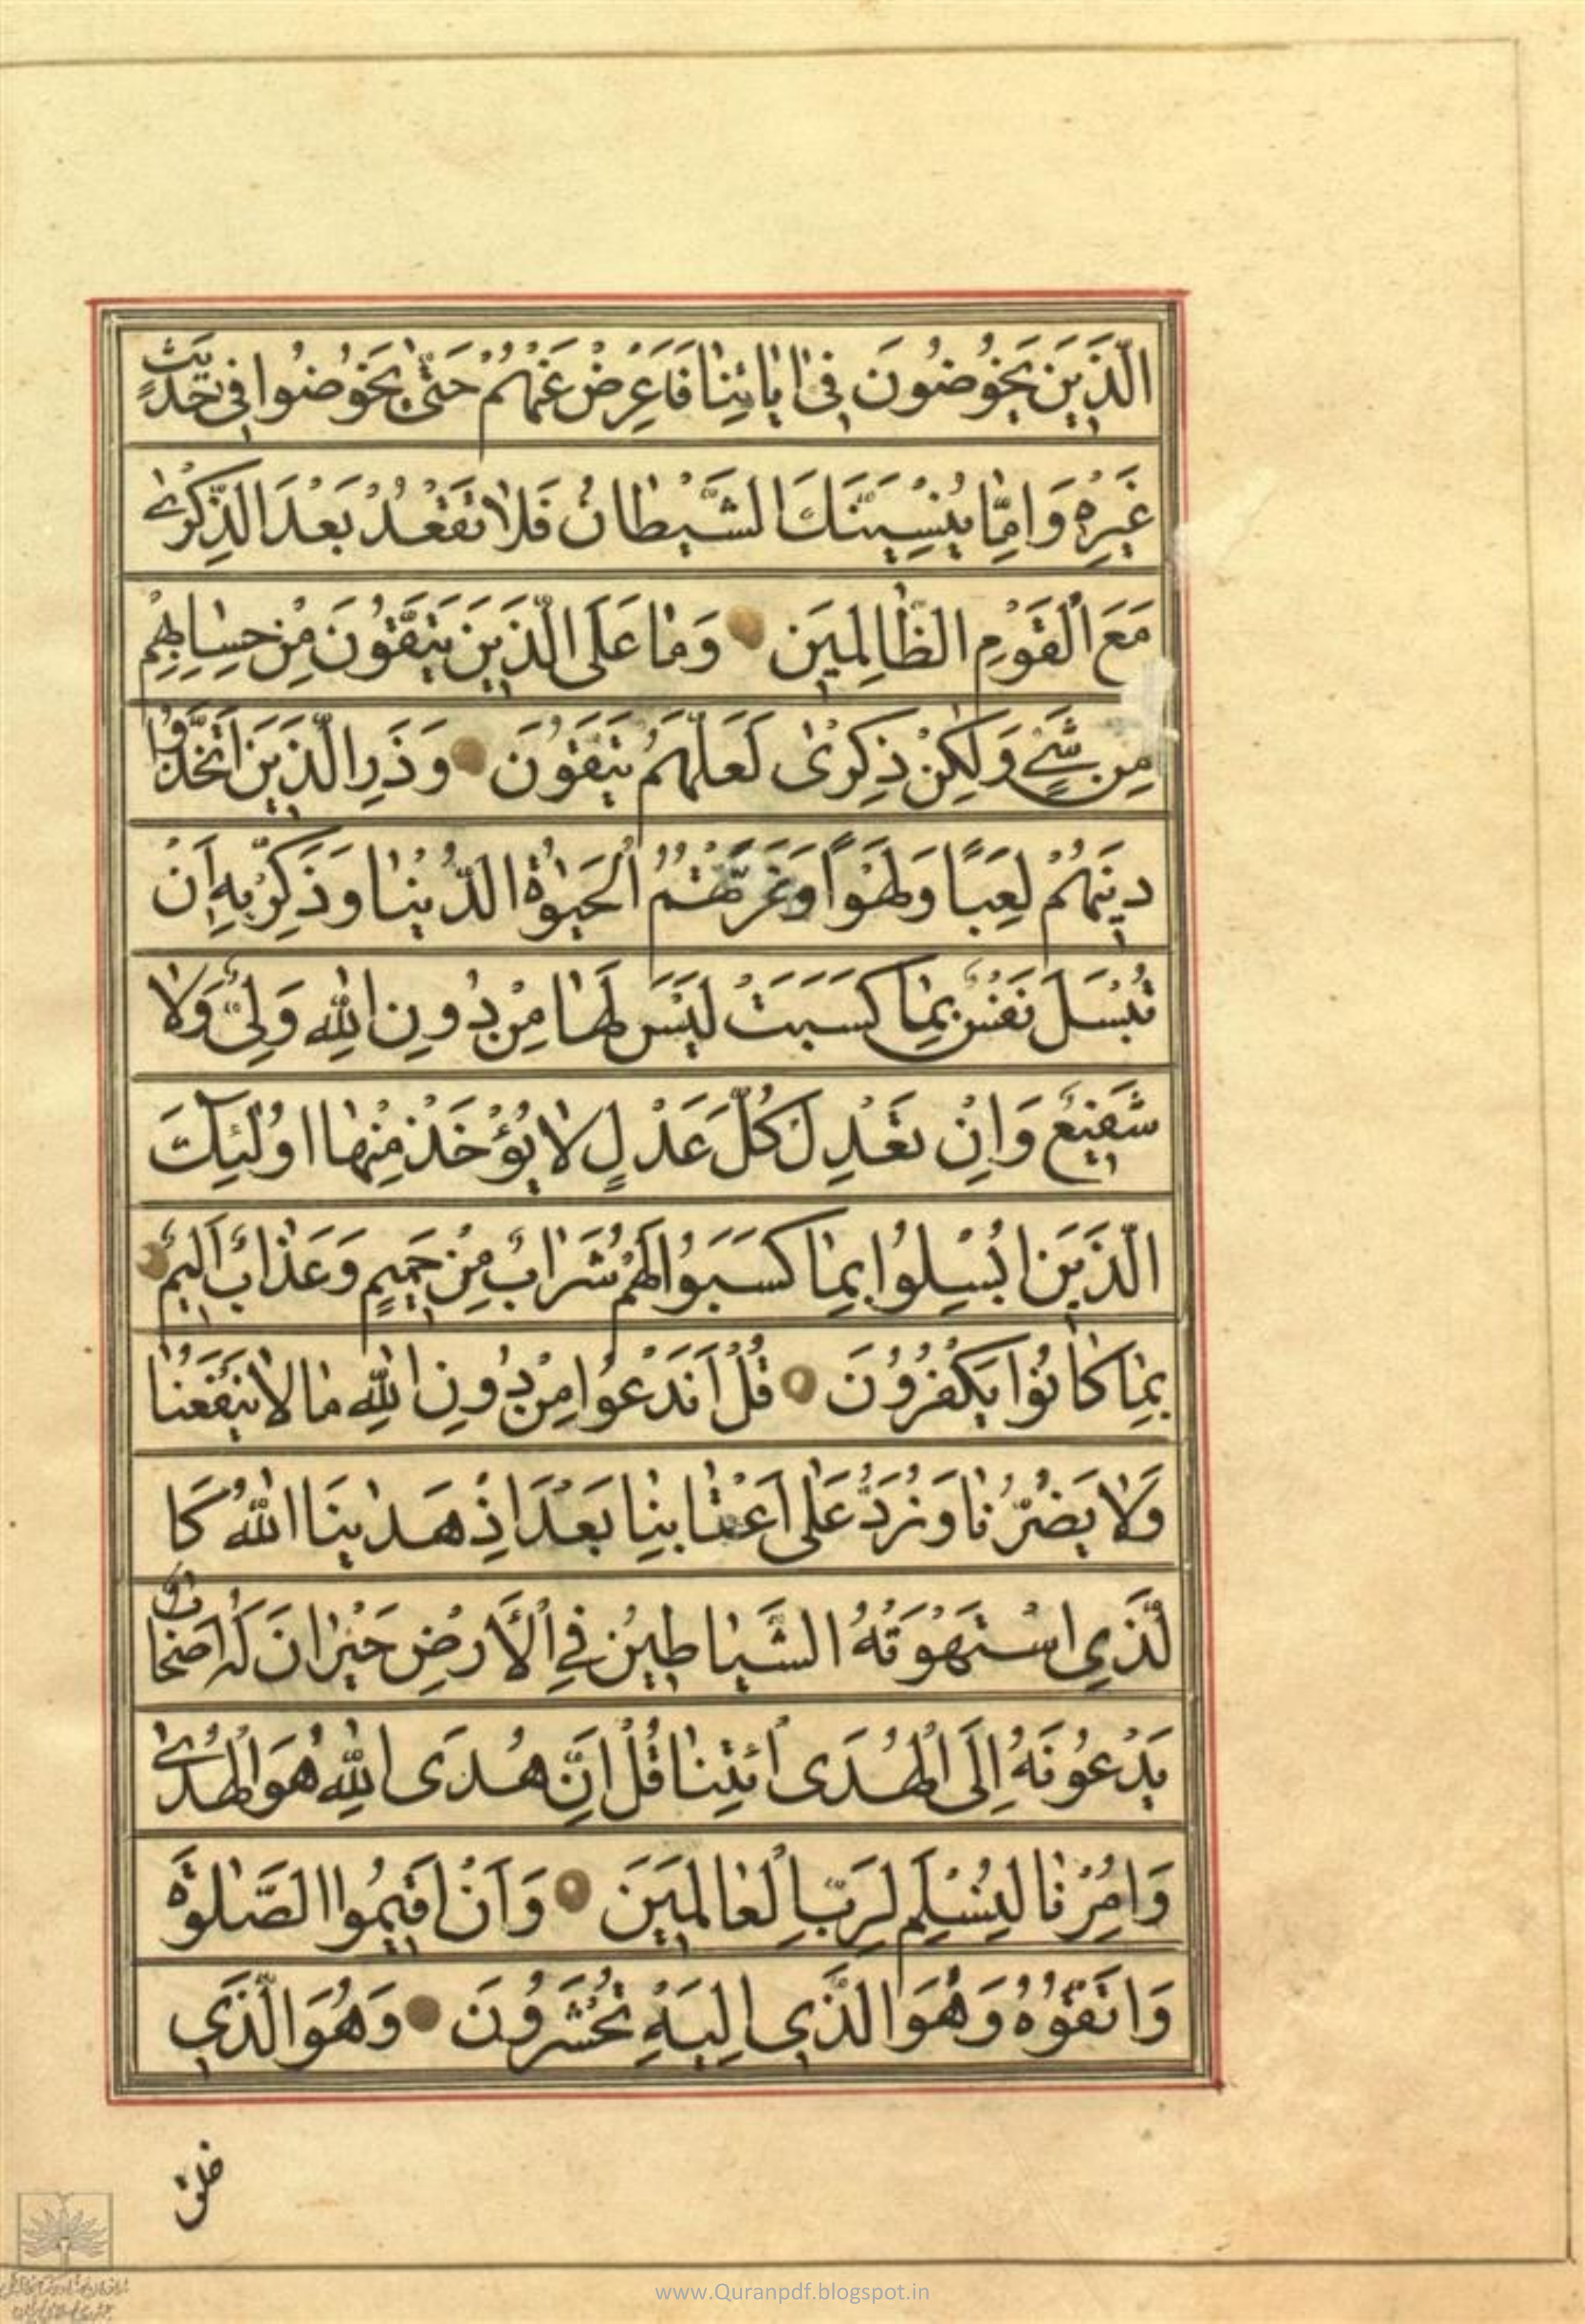 الَّذِينَ يَخُوضُونَ فِى اٰيٰاتِنٰا فَاَعْرِضْ عَنْهُمْ حَتّٰى يَخُوضُوا فِى حَدِيثٍ
غَيْرِهِ وَاِمّٰا يُنْسِيَنَّكَ الشَّيْطٰانُ فَلٰا تَقْعُدْ بَعْدَ الذِّكْرٰى
مَعَ الْقَوْمِ الظّٰالِمِينَ وَمٰا عَلَى الَّذِينَ يَتَّقُونَ مِنْ حِسٰابِهِمْ
مِنْ شَيْءٍ وَلٰكِنْ ذِكْرٰى لَعَلَّهُمْ يَتَّقُونَ وَذَرِ الَّذِينَ اتَّخَذُوا
دِينَهُمْ لَعِبًا وَلَهْوًا وَغَرَّتْهُمُ الْحَيٰوةُ الدُّنْيٰا وَذَكِّرْ بِهِ اَنْ
تُبْسَلَ نَفْسٌ بِمٰا كَسَبَتْ لَيْسَ لَهٰا مِنْ دُونِ اللّٰهِ وَلِىٌّ وَلٰا
شَفِيعٌ وَاِنْ تَعْدِلْ كُلَّ عَدْلٍ لٰا يُؤْخَذْ مِنْهٰا اُولٰئِكَ
الَّذِينَ اُبْسِلُوا بِمٰا كَسَبُوا لَهُمْ شَرٰابٌ مِنْ حَمِيمٍ وَعَذٰابٌ اَلِيمٌ
بِمٰا كٰانُوا يَكْفُرُونَ قُلْ اَنَدْعُوا مِنْ دُونِ اللّٰهِ مٰا لٰا يَنْفَعُنٰا
وَلٰا يَضُرُّنٰا وَنُرَدُّ عَلٰى اَعْقٰابِنٰا بَعْدَ اِذْ هَدٰينَا اللّٰهُ كَا
لَّذِى اسْتَهْوَتْهُ الشَّيٰاطِينُ فِى الْاَرْضِ حَيْرٰانَ لَهُ اَصْحٰابٌ
يَدْعُونَهُ اِلَى الْهُدَى ائْتِنٰا قُلْ اِنَّ هُدَى اللّٰهِ هُوَ الْهُدٰى
وَاُمِرْنٰا لِنُسْلِمَ لِرَبِّ الْعٰالَمِينَ وَاَنْ اَقِيمُوا الصَّلٰوةَ
وَاتَّقُوهُ وَهُوَ الَّذِى اِلَيْهِ تُحْشَرُونَ وَهُوَ الَّذِى
خلق
www.Quranpdf.blogspot.in